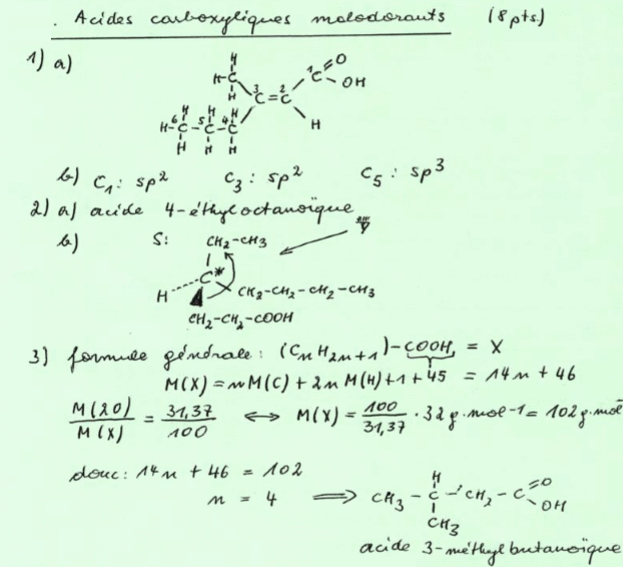 . Acides carboxyliques malodorants (8 pts)
1) a)
H
H-C 1C=O
H OH
3C=2C
H H H
H-6C-5C-4C H
H H H
b) C1: sp2 C3: sp2 C5: sp3
2) a) acide 4-éthyloctanoïque
b) S: CH2-CH3
C*
H CH2-CH2-CH2-CH3
CH2-CH2-COOH
3) formule générale: (CnH2n+1)-COOH = X
M(X) = nM(C) + 2n M(H)+1+45 = 14n + 46
M(2O)/M(X) = 31,37/100 <-> M(X) = 100/31,37 · 32 g·mol-1 = 102 g·mol-
donc: 14n + 46 = 102
H
n = 4 ⟹ CH3 - C - CH2 - C=O
OH
CH3
acide 3-méthylbutanoïque